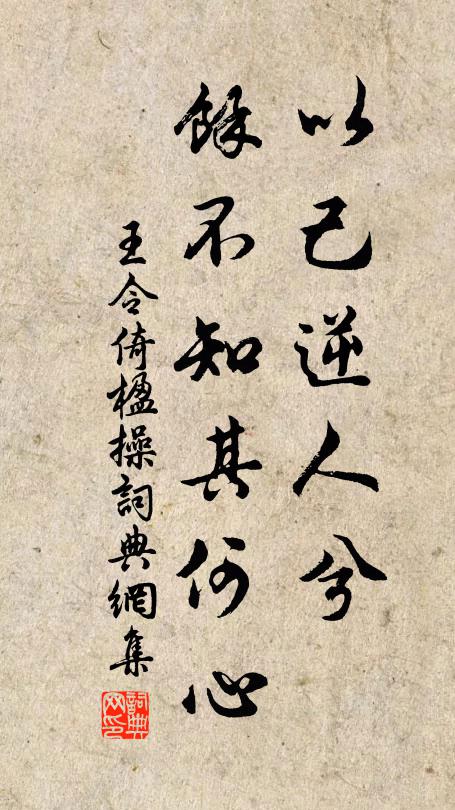 以己逆人兮
餘不知其何心
王令倚楹操詞典網集
詞典网印